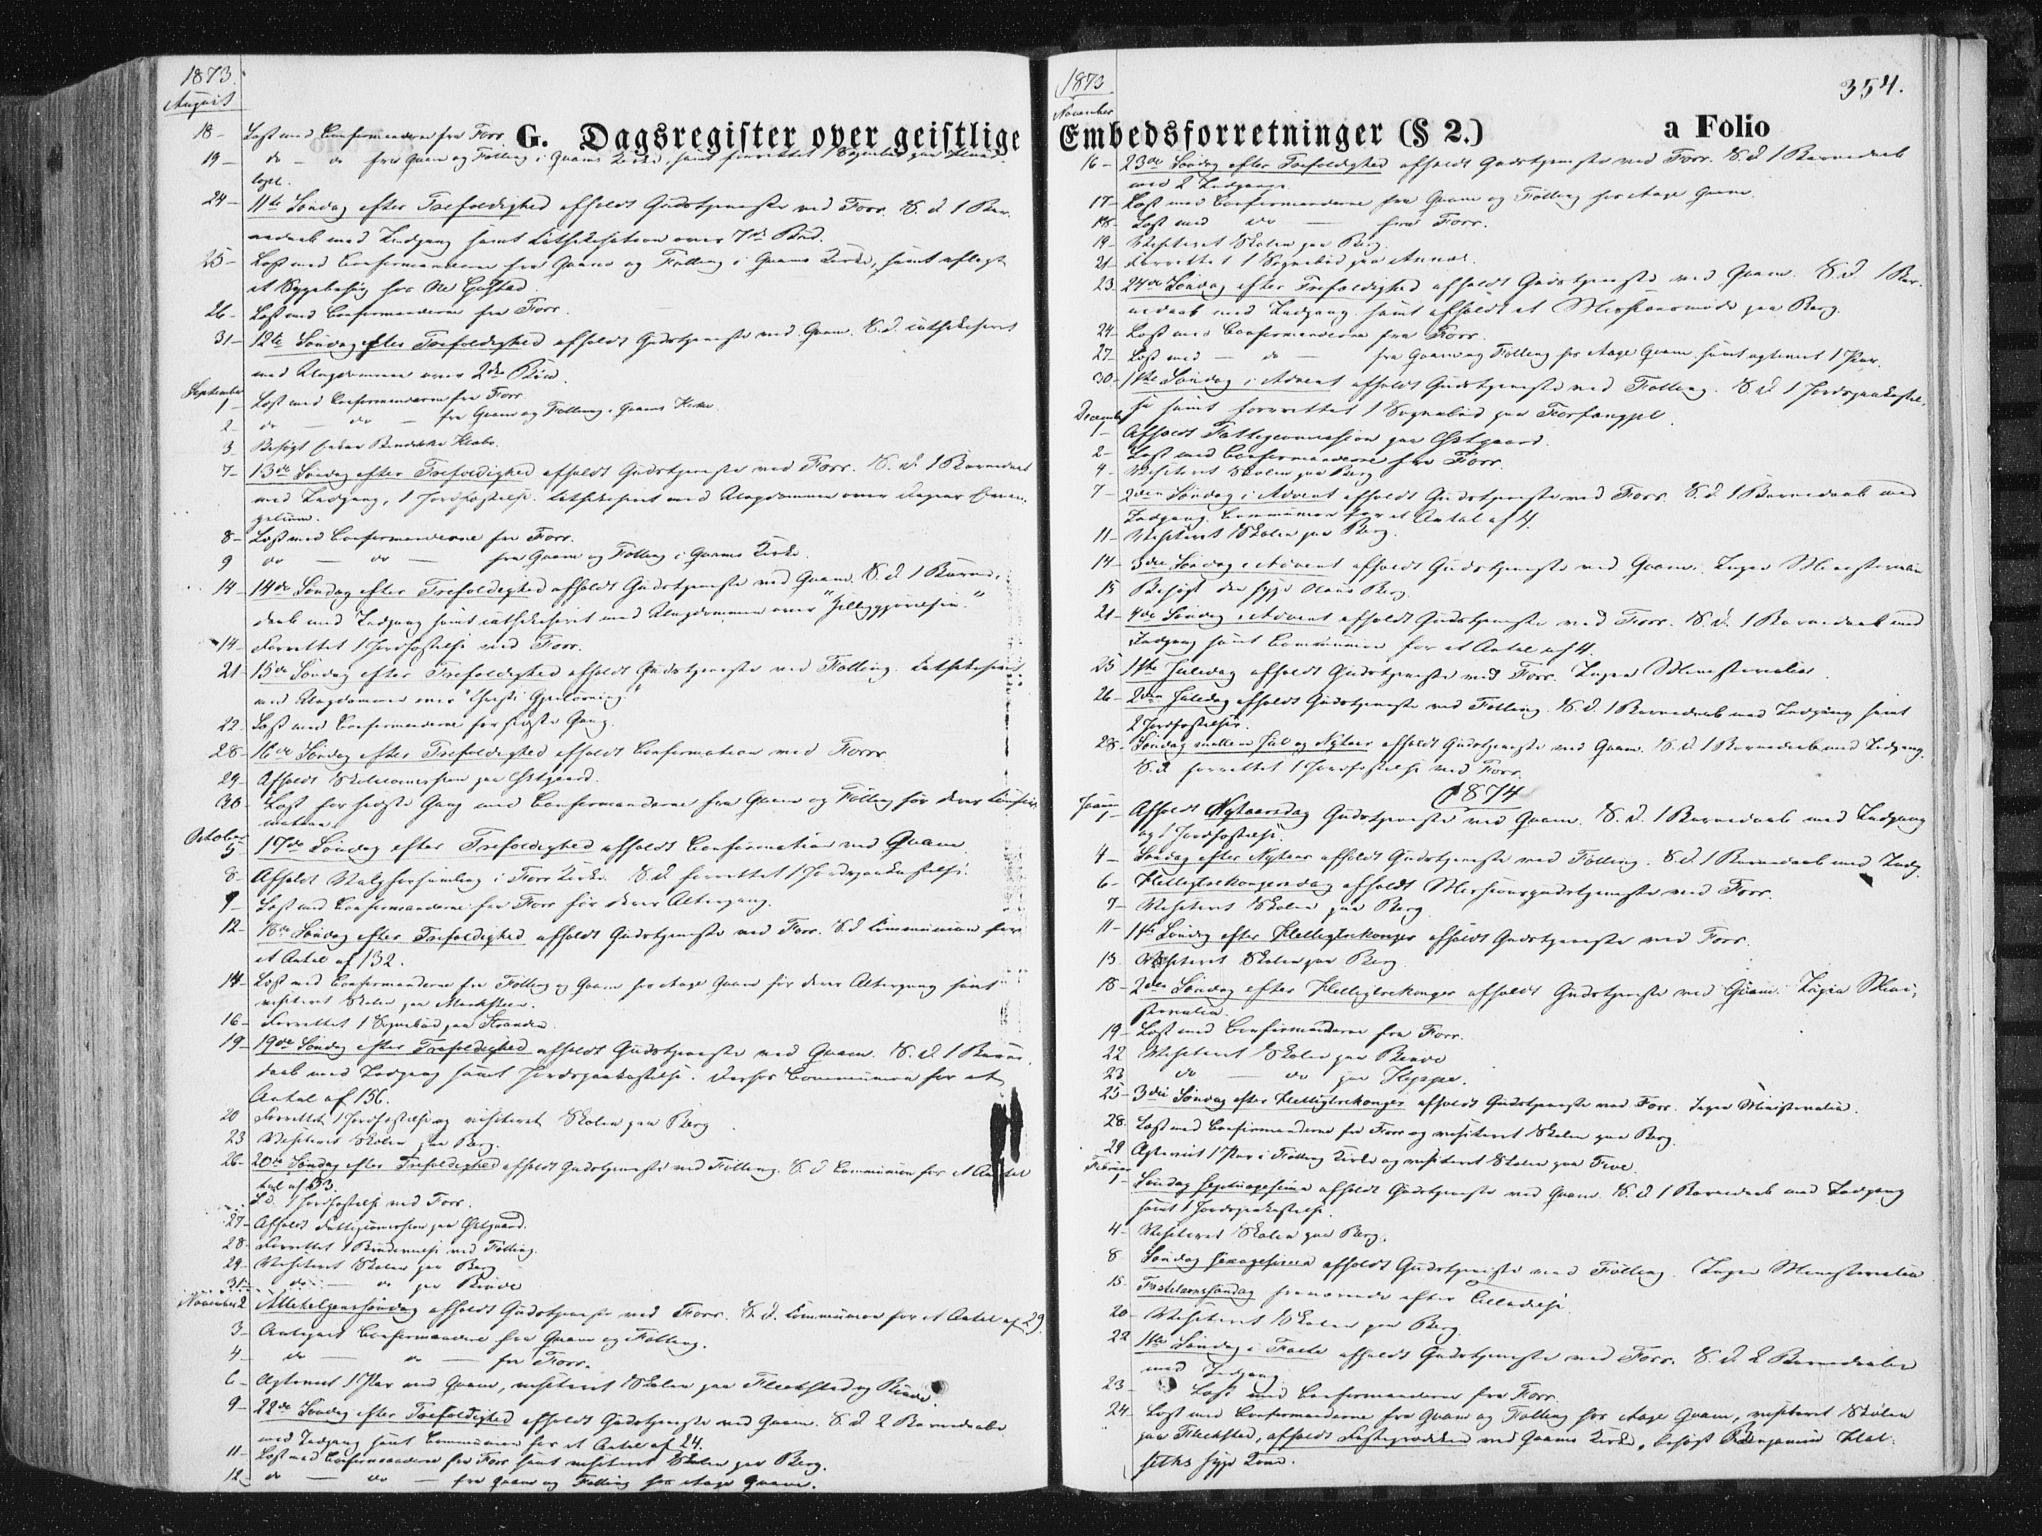 1873.
August
G. Dagsregister over geistlige
18 - Læst med Confirmanderne fra Forr.
19 - do - do fra Qvam og Følling i Qvams Kirke, samt forrettet 1 Sognebud paa
24 - 11te Søndag efter Trefoldighed afholdt Gudstjeneste ved Forr. S. d. 1 Bar-
nedaab med Indgang samt Cathekisation over 7de Bud.
25 - Læst med Confirmanderne fra Qvam og Følling i Qvams Kirke, samt aflagt
et Sygebesøg hos Ole Gifstad.
26 - Læst med Confirmanderne fra Forr.
31 - 12te Søndag efter Trefoldighed afholdt Gudstjeneste ved Qvam. S. d. cathekiseret
med Ungdommen over 2den Bøn.
September
1 Læst med Confirmanderne fra Forr
2 do - do - fra Qvam og Følling i Qvams Kirke.
3 Besøgt
7 - 13de Søndag efter Trefoldighed afholdt Gudstjeneste ved Forr. S. d. 1 Barnedaab
med Indgang, 1 Jordfæstelse. Cathekiseret med Ungdommen over Dagens Evan-
gelium.
8 - Læst med Confirmanderne fra Forr.
9 do - do - fra Qvam og Følling i Qvams Kirke.
14 - 14de Søndag efter Trefoldighed afholdt Gudstjeneste ved Qvam. S. d. 1 Barne-
daab med Indgang samt cathekiseret med Ungdommen over "Helliggjørelsen."
14 - Forrettet 1 Jordfæstelse ved Forr.
21 - 15de Søndag efter Trefoldighed afholdt Gudstjeneste ved Følling. Cathekiseret
med Ungdommen over "Christi Gjenløsning"
22. Læst med Confirmanderne for sidste Gang.
28 - 16de Søndag efter Trefoldighed afholdt Confirmation ved Forr.
29 - Afholdt Skolecommission paa Østgaard.
30 - Læst for sidste Gang med Confirmanderne fra Qvam og Følling før deres Confir-
mation.
October
5 17de Søndag efter Trefoldighed afholdt Confirmation ved Qvam.
8 - Afholdt Valgforsamling i Forr Kirke. S. d. forrettet 1 Jordspaakastelse.
9 - Læst med Confirmanderne fra Forr før deres Altergang.
12 - 18de Søndag efter Trefoldighed afholdt Gudstjeneste ved Forr. S. d Communion for
et Antal af 132.
14 - Læst med Confirmanderne fra Følling og Qvam hos Aage Qvam før deres Altergang samt
visiteret Skolen paa
16 - Forrettet 1 Sognebud paa Stranden.
19 - 19de Søndag efter Trefoldighed afholdt Gudstjeneste ved Qvam. S. d. 1 Barne-
daab med Indgang samt Jordspaakastelse. Derhos Communion for et
Antal af 156.
20 Forrettet 1 Jordfæstelse og visiteret Skolen paa Berg
23 Visiteret Skolen paa Berg.
26 - 20de Søndag efter Trefoldighed afholdt Gudstjeneste ved Følling. S. d Communion for et An-
tal af 53.
S. d. 1 Jordfæstelse ved Forr.
27 - Afholdt Fattigcommission paa Østgaard.
28 - Forrettet 1 Brudevielse ved Følling.
29 - Visiteret Skolen paa Berg
31 - do - do paa Binde
November 2 Allehelgenssøndag afholdt Gudstjeneste ved Forr. S. d. Communion for et Antal af 29.
3 - Antegnet Confirmanderne fra Qvam og Følling.
4 - do - do - fra Forr.
6 - Ægteviet 1 Par ved Qvam, visiteret Skolen paa Fleckstad og Binde.
9 - 22de Søndag efter Trefoldighed afholdt Gudstjeneste ved Qvam. S. d 2 Barnedaabe
med Indgang samt Communion for et Antal af 24.
11 - Læst med Confirmanderne fra Forr samt visiteret Skolen paa Berg.
12 - do - do - fra Qvam og Følling hos Aage Qvam.
1873
354.
November
Embedsforretninger (§ 2.) a Folio
16 - 23de Søndag efter Trefoldighed afholdt Gudstjeneste ved Forr. S. d 1 Barnedaab
med 2 Indgange.
17 - Læst med Confirmanderne fra Qvam og Følling hos Aage Qvam.
18 - Læst med do - fra Forr.
19 - Visiteret Skolen paa Berg.
21 - Forrettet 1 Sognebud paa
23 - 24de Søndag efter Trefoldighed afholdt Gudstjeneste ved Qvam. S. d. 1 Bar-
nedaab med Indgang samt afholdt et Missionsmøde paa Berg.
24 - Læst med Confirmanderne fra Forr.
27 - Læst med - do - fra Qvam og Følling hos Aage Qvam samt ægteviet 1 Par.
30 - 1ste Søndag i Advent afholdt Gudstjeneste ved Følling. S. d 1 Jordspaakastel-
se samt forrettet 1 Sognebud paa
December
1 - Afholdt Fattigcommission paa Østgaard.
2 - Læst med Confirmanderne fra Forr.
4 - Visiteret Skolen paa Berg
7 - 2den Søndag i Advent afholdt Gudstjeneste ved Forr S. d. 1 Barnedaab med
Indgang. Communion for et Antal af 4.
11 - Visiteret Skolen paa Berg.
14 - 3die Søndag i Advent afholdt Gudstjeneste ved Qvam. Ingen Ministerialia
15 Besøgt den syge Claus Berg.
21 - 4de Søndag i Advent afholdt Gudstjeneste ved Forr. S. d. 1 Barnedaab med
Indgang samt Communion for et Antal af 4.
25 1ste Juledag afholdt Gudstjeneste ved Forr. Ingen Ministerialia.
26 - 2den Juledag afholdt Gudstjeneste ved Følling. S. d. 1 Barnedaab med Indgang samt
2 Jordfæstelser.
28 - Søndag mellem Jul og Nytaar afholdt Gudstjeneste ved Qvam. S. d 1 Barnedaab med Indgang.
S. d forrettet 1 Jordfæstelse ved Forr.
1874
Januar
1 - Afholdt Nytaarsdag Gudstjeneste ved Qvam. S. d. 1 Barnedaab med Indgang
og 1 Jordfæstelse.
4 - Søndag efter Nytaar afholdt Gudstjeneste ved Følling. S. d. 1 Barnedaab med Indg.
6 - Helligtrekongersdag afholdt Missionsgudstjeneste ved Forr.
7 - Visiteret Skolen paa Berg
11 - 1ste Søndag efter Helligtrekonger afholdt Gudstjeneste ved Forr.
13. Visiteret Skolen paa Berg
18 - 2den Søndag efter Helligtrekonger afholdt Gudstjeneste ved Qvam. Ingen Mini-
sterialia.
19 - Læst med Confirmanderne fra Forr.
22 Visiteret Skolen paa Binde
23 do - do paa Heppe.
25 - 3die Søndag efter Helligtrekonger afholdt Gudstjeneste ved Forr. Ingen Ministerialia.
28. Læst med Confirmanderne fra Forr og visiteret Skolen paa Berg.
29 Ægteviet 1 Par i Følling Kirke og visiteret Skolen paa Five.
Februar
1 - Søndag Septuagesima afholdt Gudstjeneste ved Qvam. S. d 1 Barnedaab med Indgang
samt 1 Jordspaakastelse.
4 - Visiteret Skolen paa Berg.
8 Søndag Sexagesima afholdt Gudstjeneste ved Følling. Ingen Ministerialia
15. Fastelavnssøndag fraværende efter Tilladelse.
20 - Visiteret Skolen paa Berg
22 1ste Søndag i Faste afholdt Gudstjeneste ved Forr. S. d. 2 Barnedaabe
med Indgang.
23 - Læst med Confirmanderne fra Forr.
24 - Læst med Confirmanderne fra Qvam og Følling hos Aage Qvam, visiteret Skolen
paa Fleckstad, afholdt Fasteprædiken ved Qvams Kirke, besøgt Benjamin
syge Kone.